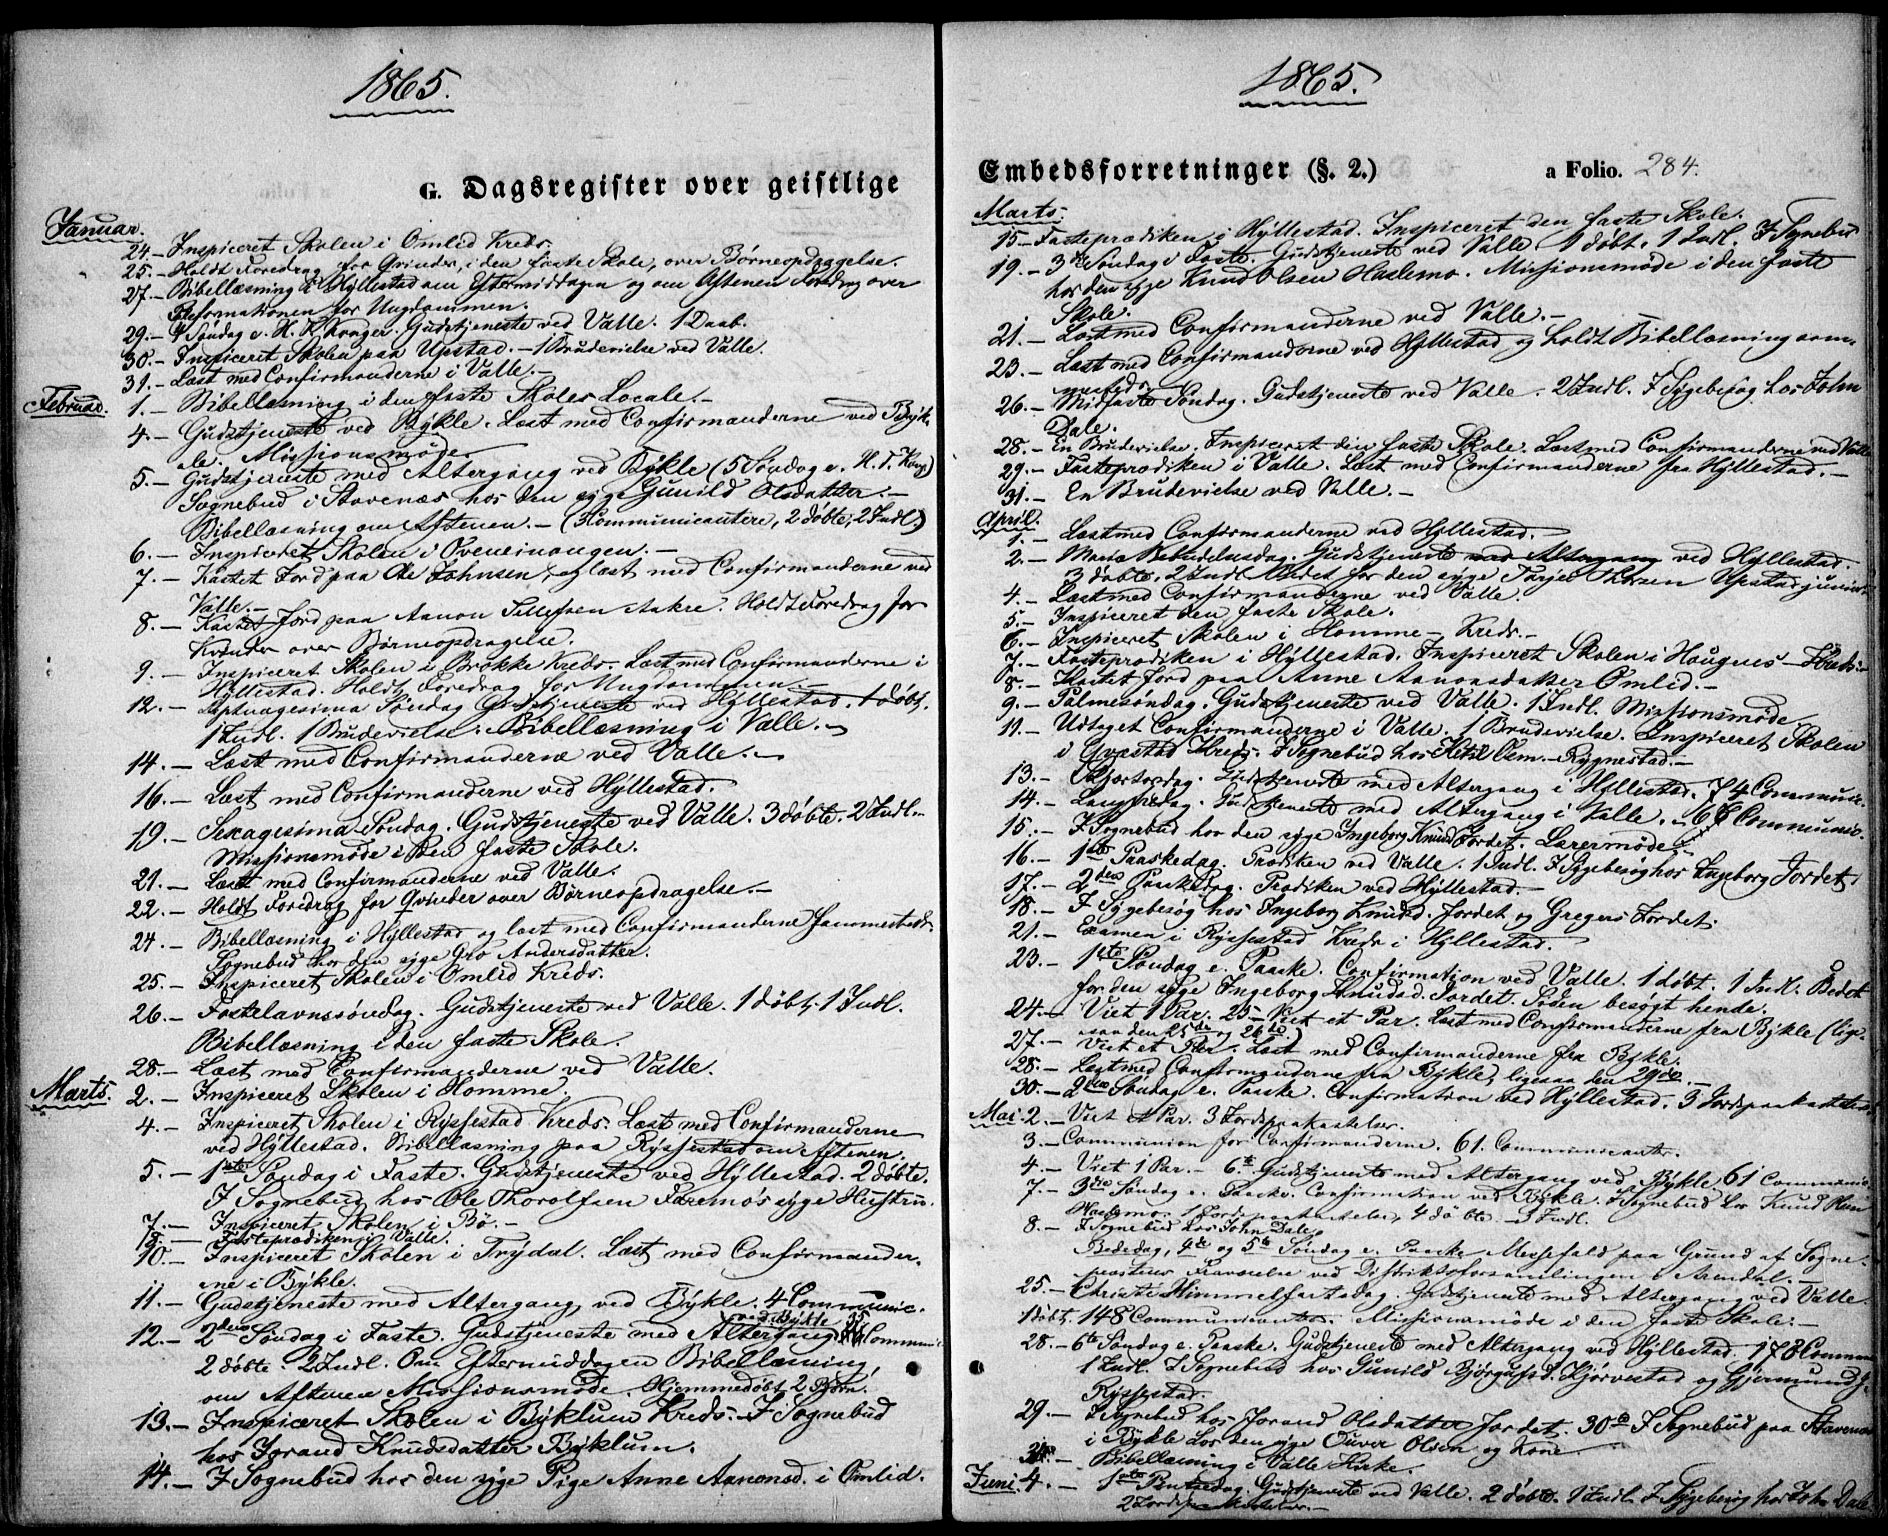 1865.
G. Dagsregister over geistlige
Januar.
24.- Inspiceret Skolen i Omlid Kreds.
25.- Holdt Foredrag for Qvinder, i den faste Skole, over Børneopdragelse.
27.- Bibellæsning i Hyllestad om Eftermiddagen og om Aftenen Foredrag over
Reformationen for Ungdommen.
29.- 4 Søndag e. H. 3 Konger. Gudstjeneste ved Valle. 1 Daab.
30.- Inspiceret Skolen paa Upstad. - 1 Brudevielse ved Valle.
31.- Læst med Confirmanderne i Valle.-
Februar.
1.- Bibellæsning i den faste Skoles Locale.-
4.- Gudstjeneste ved Bykle. Læst med Confirmanderne ved Byk-
le. Missionsmøde.
5.- Gudstjeneste med Altergang ved Bykle (5 Søndag e. H. 3. Kong.)
Sognebud i Stavenæs hos den syge Gunild Olsdatter.-
Bibellæsning om Aftenen.- (3 Communicantere, 2 døbte, 2 Indl.)
6.- Inspiceret Skolen i
7.- Kastet Jord paa Ole Johnsen, og læst med Confirmanderne ved
Valle.-
8.- Kastet Jord paa Aanon Tellefsen Aakre. Holdt Foredrag for
Kvinder over Børneopdragelse.
9.- Inspiceret Skolen i Brokke Kreds. Læst med Confirmanderne i
Hyllestad. Holdt Foredrag for Ungdommen.-
12.- Septuagesima Søndag Gudstjeneste ved Hyllestad. 1 døbt.
1 Indl. 1 Brudevielse. Bibellæsning i Valle.-
14.- Læst med Confirmanderne ved Valle.-
16.- Læst med Confirmanderne ved Hyllestad.
19.- Sexagesima Søndag. Gudstjeneste ved Valle. 3 døbte. 2 Indl.-
Missionsmøde i den faste Skole.
21.- Læst med Confirmanderne ved Valle.
22.- Holdt Foredrag for Qvinder over Børneopdragelse.-
24.- Bibellæsning i Hyllestad og læst med Confirmanderne sammesteds.
Sognebud hos den syge Gro Andersdatter.
25.- Inspiceret Skolen i Omlid Kreds.
26.- Fastelavnssøndag. Gudstjeneste ved Valle. 1 døbt, 1 Indl.
Bibellæsning i den faste Skole.
28.- Læst med Confirmanderne ved Valle.
Marts.
2.- Inspiceret Skolen i Homme.
4.- Inspiceret Skolen i Rysstad Kreds. Læst med Confirmanderne
ved Hyllestad. Bibellæsning paa Rysstad om Aftenen.
5.- 1ste Søndag i Faste. Gudstjeneste ved Hyllestad. 2 døbte.
I Sognebud hos Ole Thorolfsen Faremos syge Hustru.
7.- Inspiceret Skolen i Bø.-
8.- Fasteprædiken i Valle.
10.- Inspiceret Skolen i Trydal. Læst med Confirmander-
ne i Bykle.
11.- Gudstjeneste med Altergang ved Bykle. 4 Communic.
12.- 2den Søndag i Faste. Gudstjeneste med Altergang ved Bykle 35 Commun.
2 døbte. 2 Indl. Om Eftermiddagen Bibellæsning,
om Aftenen Missionsmøde. Hjemmedøbt 2 Børn.
13.- Inspiceret Skolen i Byklum Kreds. I Sognebud
hos Jorand Knudsdatter Byklum.
14.- I Sognebud hos den syge Pige Anne Aanonsd. i Omlid.
1865.
Embedsforretninger (§. 2.)
a Folio. 284.
Marts.
15- Fasteprædiken i Hyllestad. Inspiceret den faste Skole.
19.- 3die Søndag i Faste. Gudstjeneste ved Valle. 1 døbt. 1 Indl. I Sognebud
hos den syge Knud Olsen Haslemo. Missionsmøde i den faste
Skole.
21.- Læst med Confirmanderne ved Valle.-
23.- Læst med Confirmanderne ved Hyllestad og holdt Bibellæsning sam-
mesteds.
26.- Midfaste Søndag. Gudstjeneste ved Valle. 2 Indl. I Sygebesøg hos John
Dale.
28.- En Brudevielse. Inspiceret den faste Skole. Læst med Confirmanderne ved Valle
29.- Fasteprædiken i Valle. Læst med Confirmanderne fra Hyllestad.-
31.- En Brudevielse ved Valle.-
April.
1.- Læst med Confirmanderne ved Hyllestad.
2.- Maria Bebudelsesdag. Gudstjeneste med Altergang ved Hyllestad.
3 døbte. 2 Indl. Bedet for den syge Tarjei Upstad junior
4.- Læst med Confirmanderne ved Valle.
5.- Inspiceret den faste Skole.
6.- Inspiceret Skolen i Homme- Kreds.-
7.- Fasteprædiken i Hyllestad. Inspiceret Skolen i Hougnes- Kreds.-
8.- Kastet Jord paa Anne Aanonsdatter Omlid.-
9.- Palmesøndag. Gudstjeneste ved Valle. 1 Indl. Missionsmøde
11.- Udtaget Confirmanderne i Valle. 1 Brudevielse. Inspiceret Skolen
i Kreds. I Sognebud hos Ketil Osm. Rygnestad.-
13.- Skjærtorsdag. Gudstjeneste med Altergang i Hyllestad. 74 Communic.
14.- Langfredag. Gudstjeneste med Altergang i Valle. - 66 Communic.
15.- I Sognebud hos den syge Ingeborg Knudsd. Jordet. Lærermøde.
16.- 1ste Paaskedag. Prædiken ved Valle. 1 Indl. I Sygebesøg hos Ingeborg Jordet.
17.- 2den Paaskedag. Prædiken ved Hyllestad.-
18.- I Sygebesøg hos Ingeborg Knudsd. Jordet og Gregers Jordet.
21.- Examen i Rysstad Kreds i Hyllestad.
23.- 1ste Søndag e. Paaske. Confirmation ved Valle. 1 døbt. 1 Indl. Bedet
for den syge Ingeborg Knudsd. Jordet. Siden besøgt hende.
24.- Viet 1 Par. 25- Viet et Par. Læst med Confirmanderne fra Bykle (lige-
saa den 25de og 26de)
27.- Viet et Par. Læst med Confirmanderne fra Bykle.
28.- Læst med Confirmanderne fra Bykle, ligesaa den 29de.-
30.- 2den Søndag e. Paaske. Confirmation ved Hyllestad. 3 Jordpaakastelser.
Mai.
2.- Viet 1 Par. 3 Jordpaakastelser.
3.- Communion for Confirmanderne. 61. Communicants.
4.- Viet 1 Par.- 6te Gudstjeneste med Altergang ved Bykle 61 Communic.
7.- 3die Søndag e. Paaske. Confirmation ved Bykle. I Sognebud hos Knud
Haslemo. 1 Jordpaakastelse, 4 døbte - 3 Indl.
8.- I Sognebud hos John Dale.
Bededag, 4de og 5te Søndag e. Paaske Messefald paa Grund af Sogne-
præstens Fraværelse ved Distriktsforsamlingen i Arendal.-
25.- Christi Himmelfartsdag. Gudstjeneste med Altergang ved Valle.
1 døbt. 148 Communicanter. Missionsmøde i den faste Skole.-
28.- 6te Søndag e. Paaske. Gudstjeneste med Altergang ved Hyllestad. 178 Commun.
1 Indl. I Sognebud hos Gunild Bjørgufsd. Kjørvestad og Gjermund
Rysstad.
29.- I Sognebud hos Jorand Olsdatter Jordet. 30te I Sognebud paa Stavenæs
i Bykle hos den syge Ouver Olsen og Kone.
31.- Bibellæsning i Valle Kirke.
Juni.
4.- 1ste Pintsedag. Gudstjeneste ved Valle. 2 døbte. 1 Indl. I Sygebesøg hos John Dale
2 Jordpaakastelser.-